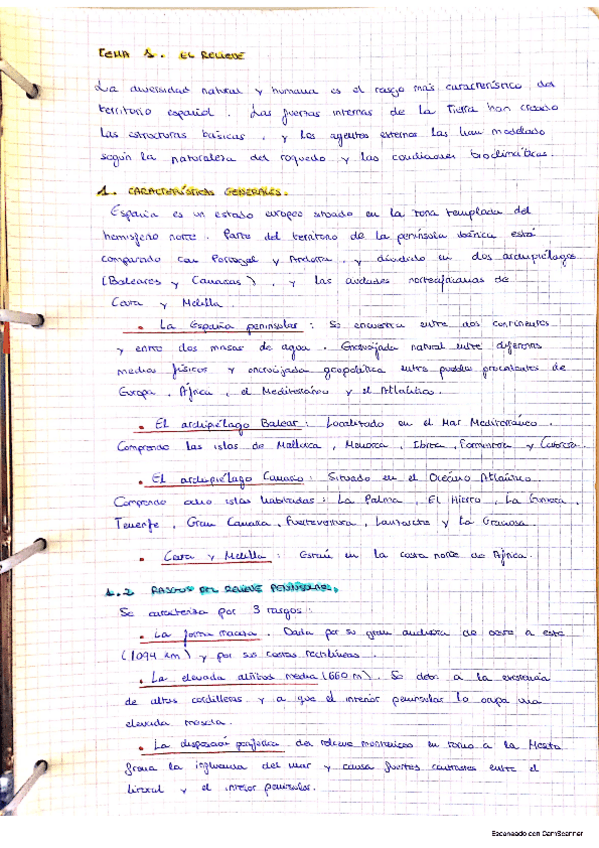 TEMA 1. EL RELIEVE
La diversidad natural y humana es el rasgo más característico del
territorio español. Las fuerzas internas de la Tierra han creado
las estructuras básicas, y los agentes externos las han modelado
según la naturaleza del roquedo y las condiciones bioclimáticas.
1. CARACTERÍSTICAS GENERALES.
España es un estado europeo situado en la zona templada del
hemisferio norte. Parte del territorio de la península ibérica está
compartido con Portugal y Andorra, y dividido en dos archipiélagos
(Baleares y Canarias), y las ciudades norteafricanas de
Ceuta y Melilla.
• La España peninsular: Se encuentra entre dos continentes
y entre dos masas de agua. Encrucijada natural entre diferentes
medios físicos y encrucijada geopolítica entre pueblos procedentes de
Europa, África, el Mediterráneo y el Atlántico.
• El archipiélago Balear: Localizado en el Mar Mediterráneo.
Comprende las islas de Mallorca, Menorca, Ibiza, Formentera y Cabrera.
• El archipiélago Canario: Situado en el Océano Atlántico.
Comprende ocho islas habitadas: La Palma, El Hierro, La Gomera,
Tenerife, Gran Canaria, Fuerteventura, Lanzarote y La Graciosa.
• Ceuta y Melilla: Están en la costa norte de África.
1.2 RASGOS DEL RELIEVE PENINSULAR.
Se caracteriza por 3 rasgos:
• La forma maciza. Dada por su gran anchura de oeste a este
(1094 km) y por sus costas rectilíneas.
• La elevada altitud media (660 m). Se debe a la existencia
de altas cordilleras y a que el interior peninsular lo ocupa una
elevada meseta.
• La disposición periférica del relieve montañoso en torno a la Meseta
frena la influencia del mar y causa fuertes contrastes entre el
litoral y el interior peninsular.
Escaneado con CamScanner